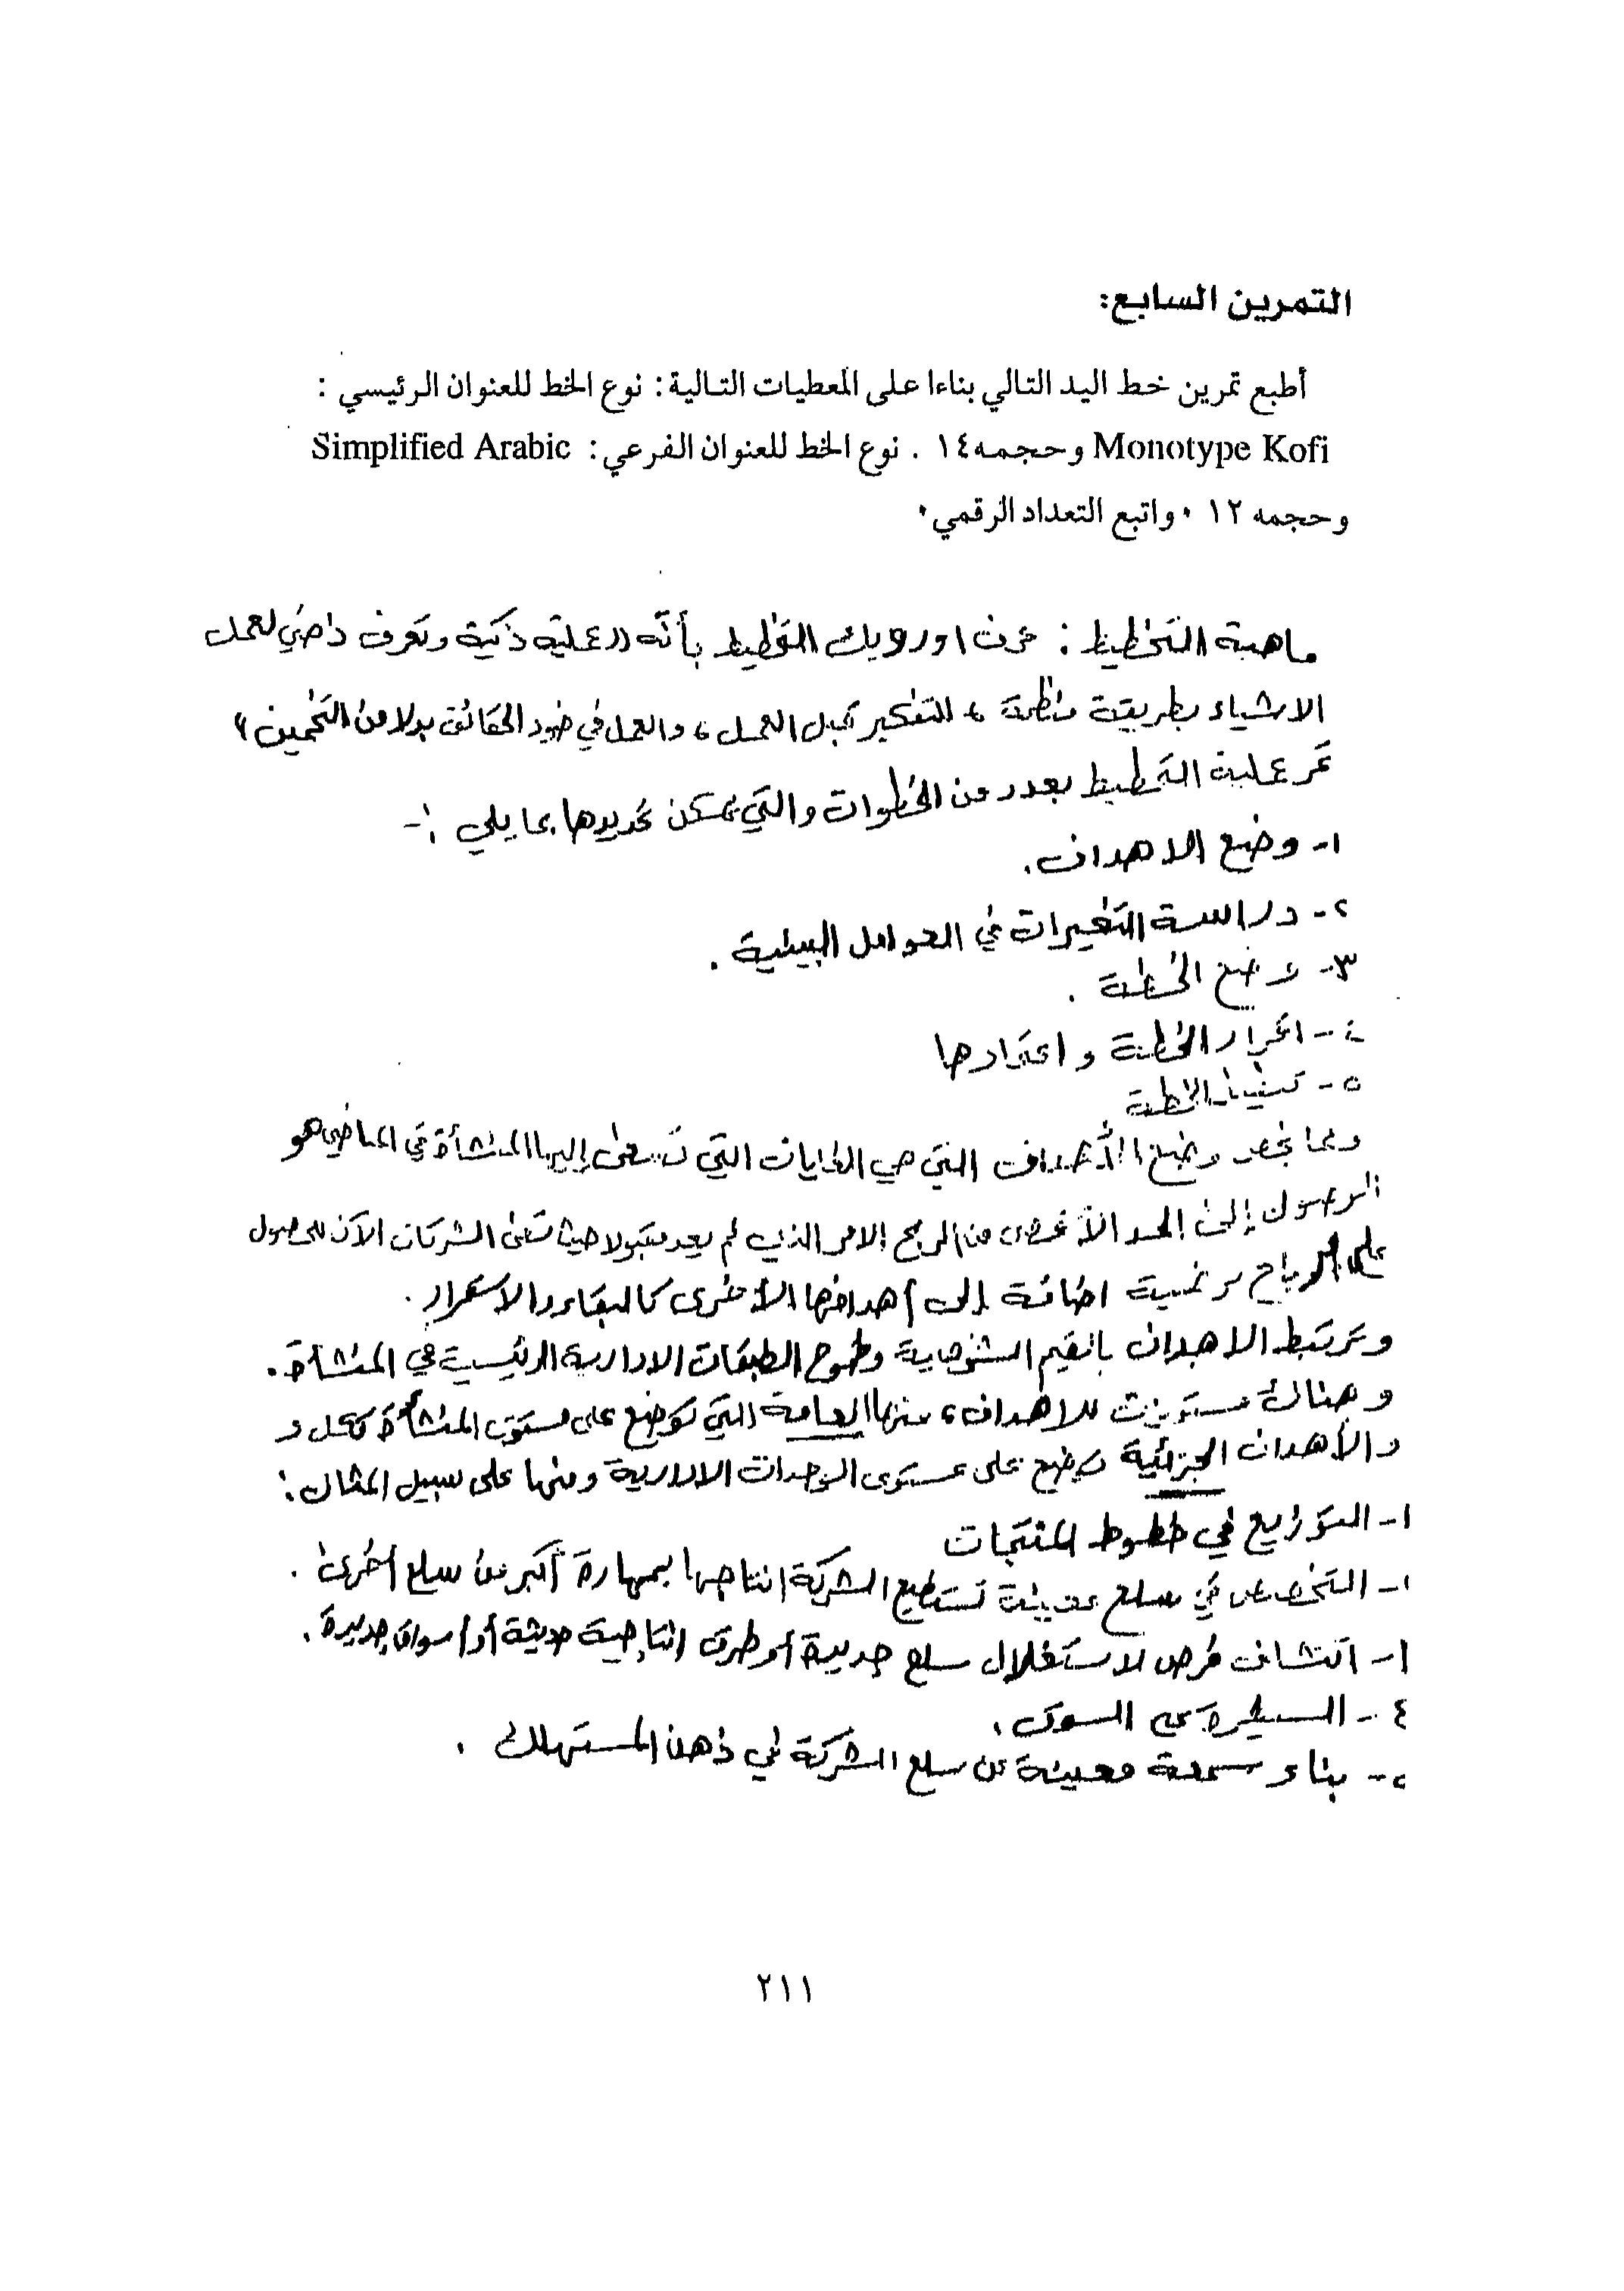 التمرين السابع:
أطبع تمرين خط اليد التالي بناءا على المعطيات التالية: نوع الخط للعنوان الرئيسي :
Monotype Kofi وحجمه١٤ . نوع الخط للعنوان الفرعي: Simplified Arabic
وحجمه ١٢ ٠ واتبع التعداد الرقمي٠
ماهية التخطيط : عرف اورويك التخطيط بأنه ((عملية ذكية وتعرف ذهني لعمل
الاشياء بطريقة منظمة ، التفكير قبل العمل ، والعمل في ضوء الحقائق بدلا من التخمين))
تمر عملية التخطيط بعدد من الخطوات والتي يمكن تحديدها بما يلي :-
١- وضع الاهداف.
٢- دراسة التغيرات في العوامل البيئية .
٣- وضع الخطة .
٤- اقرار الخطة واعتمادها
٥- تنفيذ الخطة
وفيما يخص وضع الأهداف التي هي الغايات التي تسعى إليها المنشأة في الماضي هو
الوصول إلى الحد الأقصى من الربح الامر الذي لم يعد مقبولا حيث تسعى الشركات الآن للحصول
على ارباح مرضية اضافة إلى أهدافها الأخرى كالبقاء والاستمرار.
وترتبط الاهداف بالقيم الشخصية وطموح الطبقات الادارية الرئيسية في المنشأة .
وهناك مستويات للاهداف ، منها العامة التي توضع على مستوى المنشأة ككل و
والأهداف الجزئية توضع على مستوى الوحدات الادارية ومنها على سبيل المثال :
١- التوزايع في خطوط المنتجات
١- التخصص في سلع معينة تستطيع الشركة انتاجها بمهارة أكبر من سلع أخرى .
١- اكتشاف فرص لاستغلال سلع جديدة أو طرق انتاجية حديثة أو أسواق جديدة .
٤- السيطرة على السوق .
٥- بناء سمعة معينة عن سلع الشركة في ذهن المستهلك .
٢١١